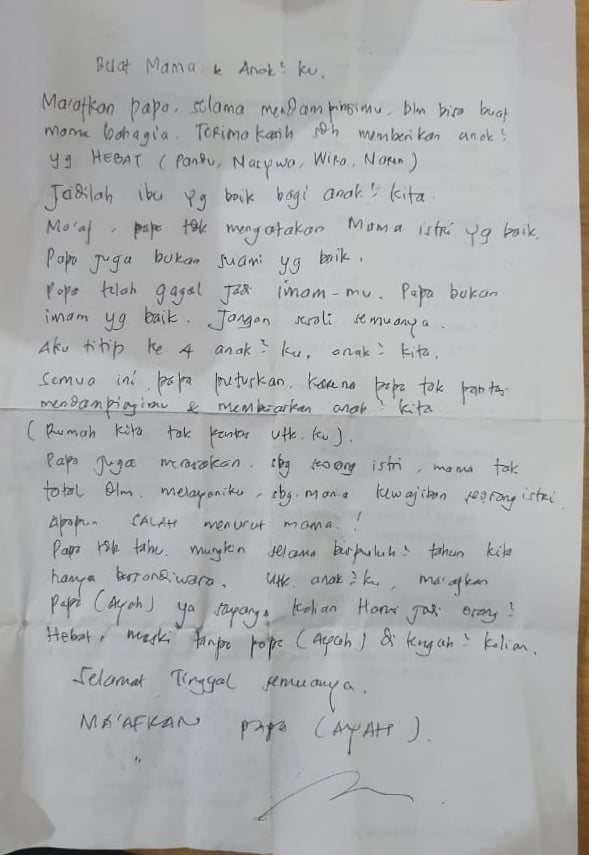 Buat Mama & Anak² ku.
Ma'afkan papa, selama mendampingimu, blm bisa buat
mama bahagia. Terima kasih sdh memberikan anak²
yg HEBAT (Pandu, Nasywa, Wira, Naren)
Jadilah ibu yg baik bagi anak² kita.
Ma'af, papa tak mengatakan Mama istri yg baik.
Papa juga bukan suami yg baik.
Papa telah gagal jadi imam-mu. Papa bukan
imam yg baik. Jangan semuanya.
Aku titip ke 4 anak² ku, anak² kita.
Semua ini papa putuskan, karena papa tak pantas
mendampingimu & membesarkan anak² kita
(Rumah kita tak pantas utk. ku).
Papa juga merasakan, sbg seorang istri, mama tak
total dlm. melayaniku, sbg. mana kewajiban seorang istri.
Apapun SALAH menurut mama!
Papa tak tahu, mungkin selama berpuluh² tahun kita
hanya bersandiwara. Utk. anak² ku, ma'afkan
Papa (Ayah) ya sayang. Kalian Harus jadi orang²
Hebat, meski tanpa papa (Ayah) di tengah² kalian.
Selamat Tinggal semuanya.
MA'AFKAN papa (AYAH).